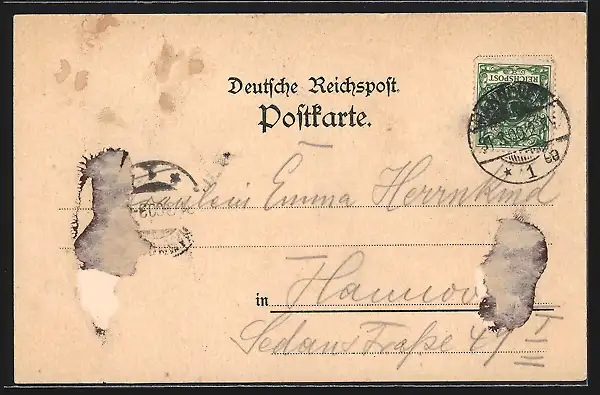 Deutsche Reichspost.
Postkarte.
REICHSPOST
* 1 *
Fräulein Emma Herrnkind
in Hannover
Sedanstraße 49 II